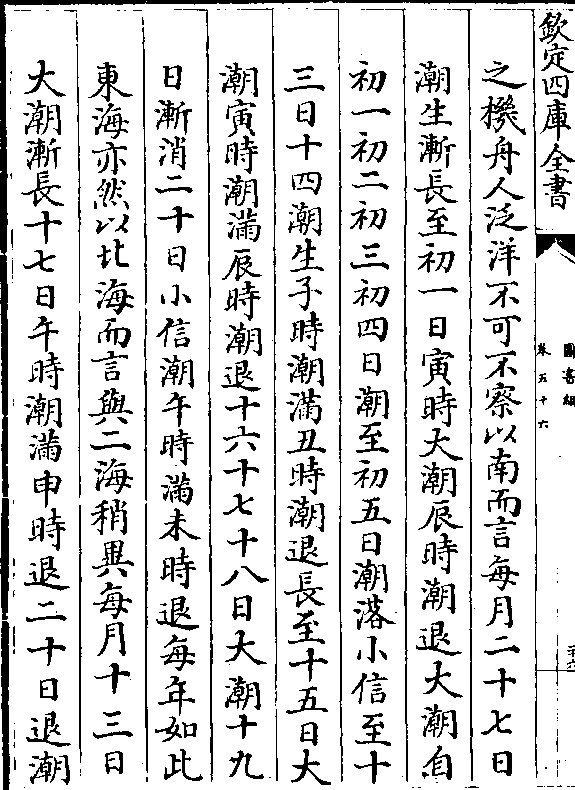 欽定四庫全書
圖書編
卷五十六
之機舟人泛洋不可不察以南而言每月二十七日
潮生漸長至初一日寅時大潮辰時潮退大潮自
初一初二初三初四日潮至初五日潮落小信至十
三日十四潮生子時潮滿丑時潮退長至十五日大
潮寅時潮滿辰時潮退十六十七十八日大潮十九
日漸消二十日小信潮午時滿未時退每年如此
東海亦然以北海而言與二海稍異每月十三日
大潮漸長十七日午時潮滿申時退二十日退潮